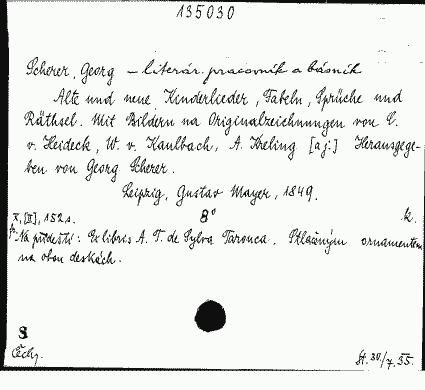 135030
Scherer, Georg – literár. pracovník a básník
Alte und neue Kinderlieder, Fabeln, Sprüche und
Räthsel. Mit Bildern na Originalzeichnungen von C.
v. Heideck, W. v. Kaulbach, A. Kreling [aj:] Herausgege-
ben von Georg Scherer.
Leipzig, Gustav Mayer, 1849.
X, [II], 152 s. 8° k.
Na přídeští: Ex libris A. T. de Sylva Tarouca. Stlačným ornamentem
na obou deskách.
8
Čechy.
St. 30/7.55.